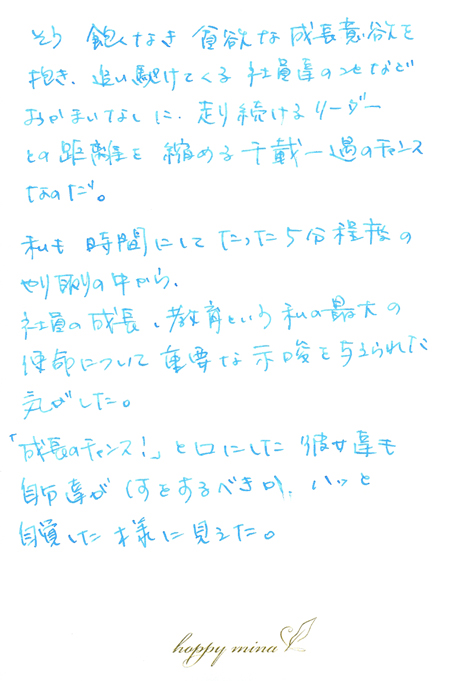 そう 飽くなき 貪欲な 成長意欲を
抱き、追い駆けてくる 社員達のことなど
おかまいなしに、走り続けるリーダー
との距離を 縮める千載一遇のチャンス
なのだ。
私も 時間にして たった5分程度の
やり取りの中から、
社員の成長、教育という 私の最大の
使命について 重要な示唆を与えられた
気がした。
「成長のチャンス！」と口にした 彼女達も
自分達が 何をするべきか、ハッと
自覚した様に見えた。
happy mina